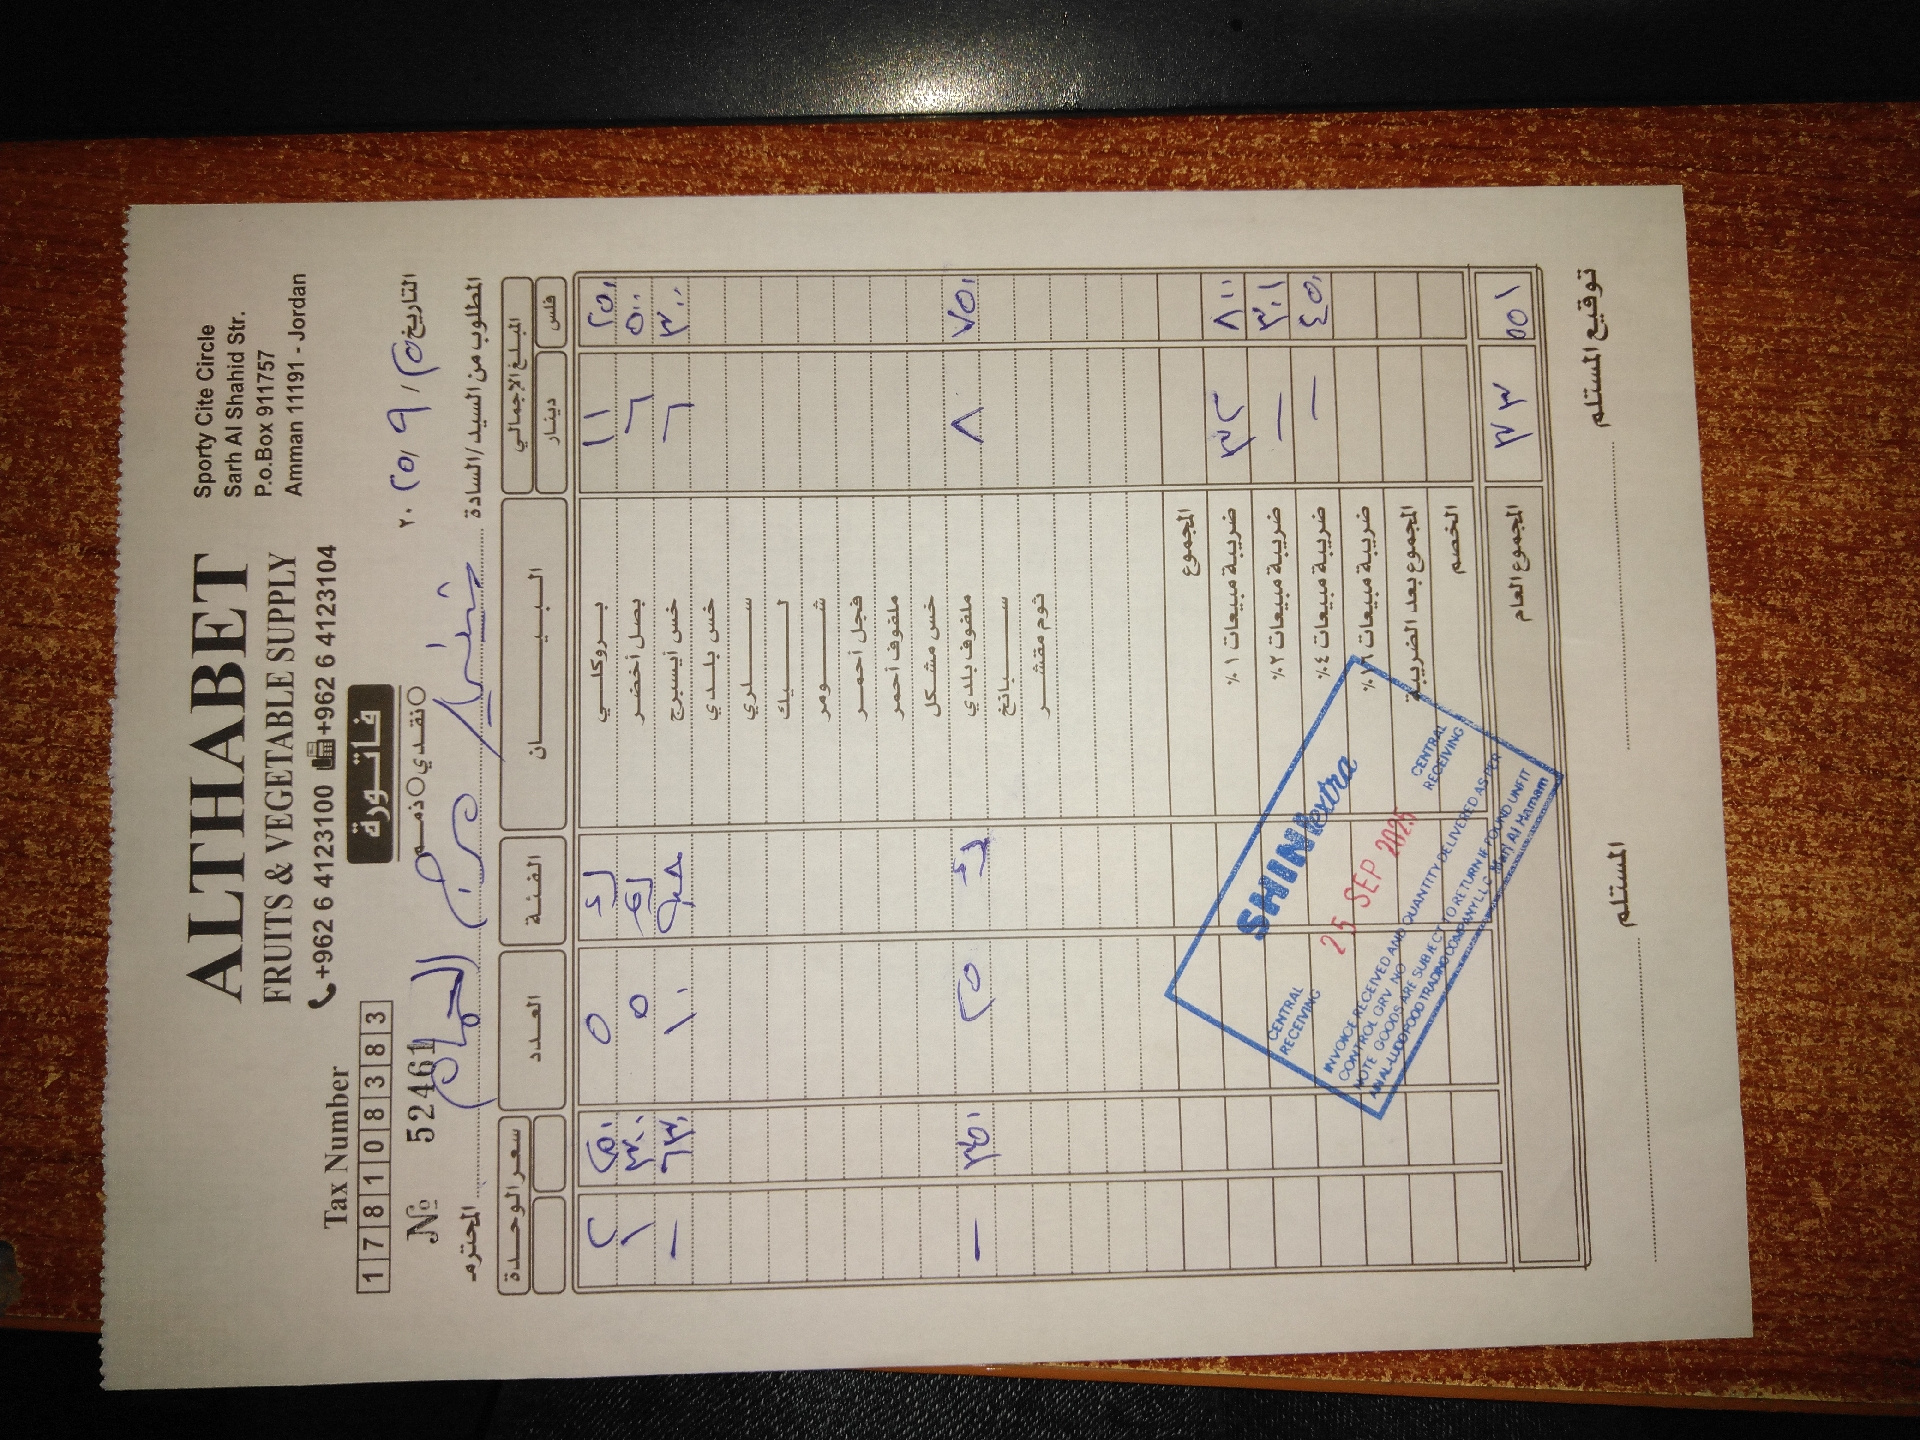 ALTHABET
FRUITS & VEGETABLE SUPPLY
+962 6 4123100 +962 6 4123104
Sporty Cite Circle
Sarh Al Shahid Str.
P.o.Box 911757
Amman 11191 - Jordan
Tax Number
1 7 8 1 0 8 3 8 3
فاتورة
نقدي ذمم
№ 52461
التاريخ ٢٥ / ٩ / ٢٠٢٥
المطلوب من السيد/السادة
المحترم
المبلغ الإجمالي البيــــان الفئة العدد سعر الوحدة
فلس دينار
٢٥٠ ١١ بروكلي ك ٥ ٢٥٠ ٢
٥٠٠ ٦ بصل أخضر ٥ ٣٠٠ ١
٣٠٠ ٦ خس أيسبرج حبة ١٠ ٦٣٠ —
خس بلدي
ســـلري
لـــيك
شـــومر
فجل أحمر
ملفوف أحمر
خس مشكل
٧٥٠ ٨ ملفوف بلدي ك ٢٥ ٣٥٠ —
ســـبانخ
ثوم مقشر
المجموع
٨٠٠ ٣٢ ضريبة مبيعات ١٪
٣٠١ — ضريبة مبيعات ٢٪
٤٥٠ — ضريبة مبيعات ٤٪
ضريبة مبيعات ١٦٪
المجموع بعد الضريبة
الخصم
٥٥١ ٣٣ المجموع العام
توقيع المستلم
المستلم
SHINI extra
CENTRAL RECEIVING
25 SEP 2025
CENTRAL RECEIVING
INVOICE RECEIVED AND QUANTITY DELIVERED AS PER
CONTROL GRV NO
NOTE GOODS ARE SUBJECT TO RETURN IF FOUND UNFIT
FOOD TRADING COMPANY L.L.C Marj Al Hamam